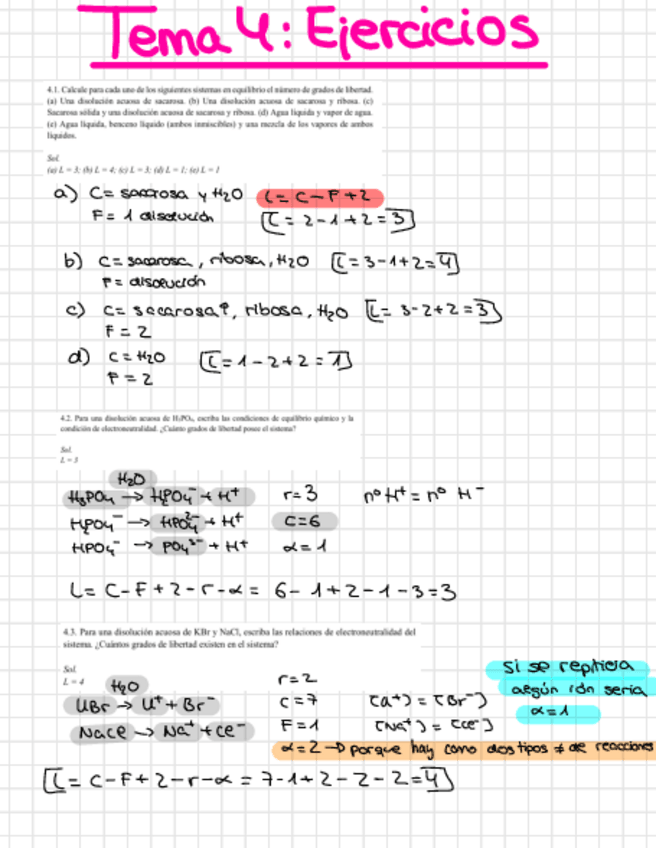 Tema 4: Ejercicios
4.1. Calcule para cada uno de los siguientes sistemas en equilibrio el número de grados de libertad.
(a) Una disolución acuosa de sacarosa. (b) Una disolución acuosa de sacarosa y ribosa. (c)
Sacarosa sólida y una disolución acuosa de sacarosa y ribosa. (d) Agua líquida y vapor de agua.
(e) Agua líquida, benceno líquido (ambos inmiscibles) y una mezcla de los vapores de ambos
líquidos.
Sol.
(a) L = 3; (b) L = 4; (c) L = 3; (d) L = 1; (e) L = 1
a) C = sacarosa y H₂O L = C - F + 2
F = 1 disolución L = 2 - 1 + 2 = 3
b) C = sacarosa, ribosa, H₂O L = 3 - 1 + 2 = 4
F = disolución
c) C = sacarosa, ribosa, H₂O L = 3 - 2 + 2 = 3
F = 2
d) C = H₂O L = 1 - 2 + 2 = 1
F = 2
4.2. Para una disolución acuosa de H₃PO₄, escriba las condiciones de equilibrio químico y la
condición de electroneutralidad. ¿Cuánto grados de libertad posee el sistema?
Sol.
L = 3
H₂O
H₃PO₄ → H₂PO₄⁻ + H⁺ r = 3 nº H⁺ = nº H⁻
H₂PO₄⁻ → HPO₄²⁻ + H⁺ C = 6
HPO₄⁻ → PO₄³⁻ + H⁺ α = 1
L = C - F + 2 - r - α = 6 - 1 + 2 - 1 - 3 = 3
4.3. Para una disolución acuosa de KBr y NaCl, escriba las relaciones de electroneutralidad del
sistema. ¿Cuántos grados de libertad existen en el sistema?
Sol.
L = 4
H₂O r = 2 si se repitiera
UBr → U⁺ + Br⁻ C = 7 [U⁺] = [Br⁻] algún ión sería
NaCl → Na⁺ + Cl⁻ F = 1 [Na⁺] = [Cl⁻] α = 1
α = 2 → porque hay como dos tipos ≠ de reacciones
L = C - F + 2 - r - α = 7 - 1 + 2 - 2 - 2 = 4